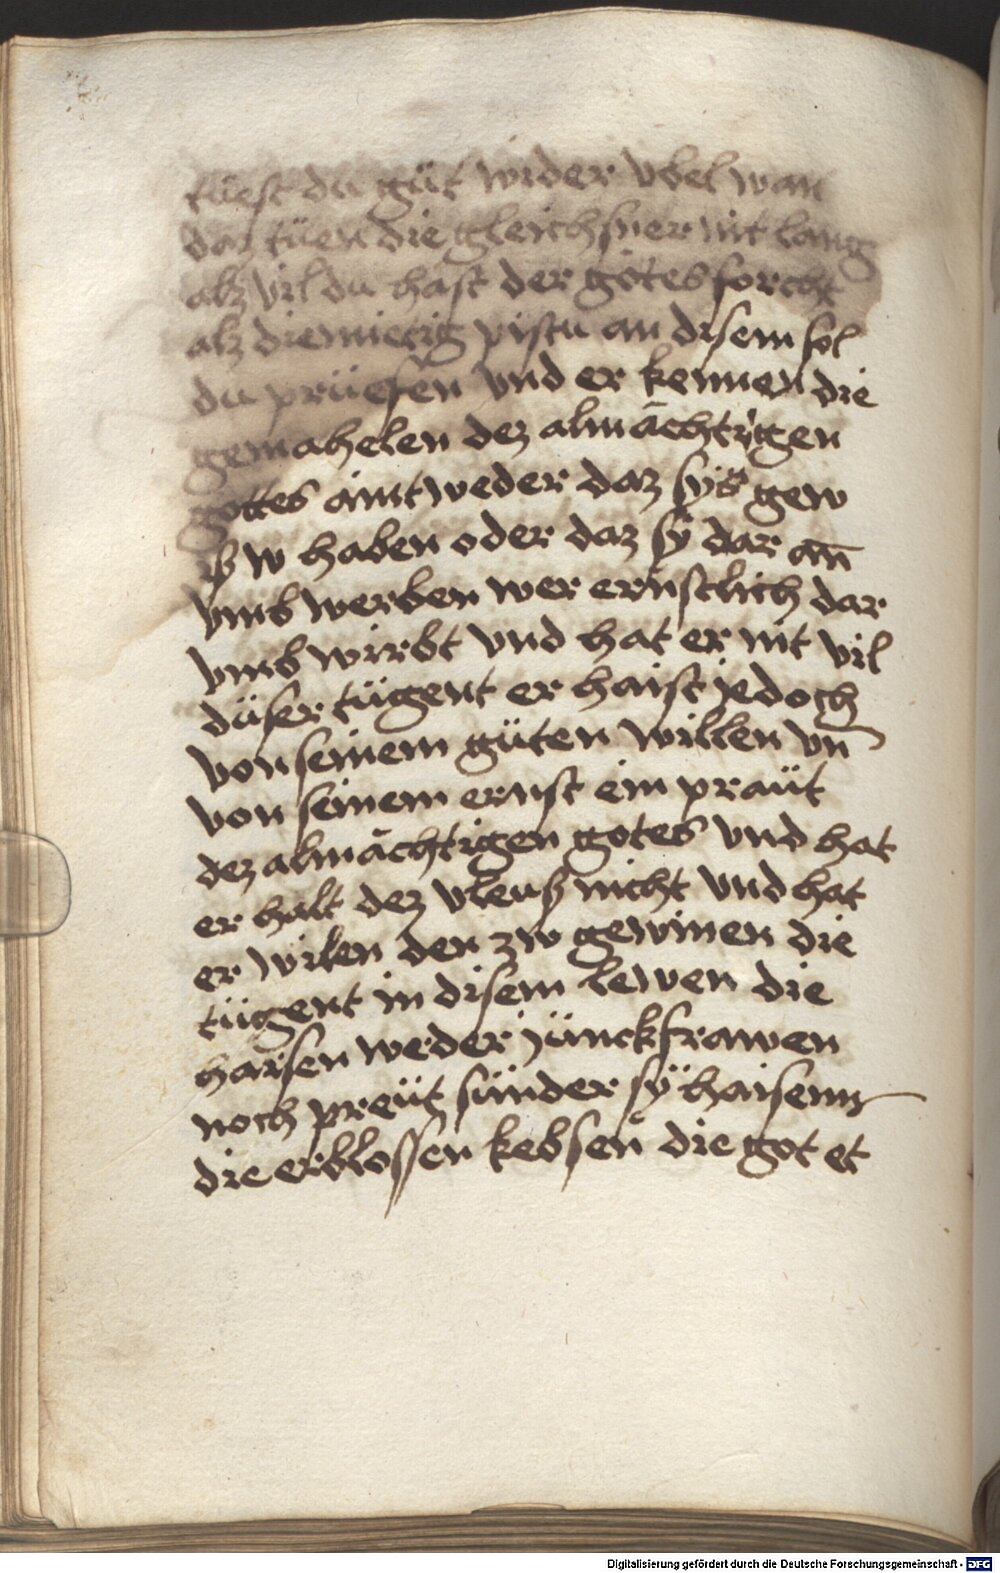 tüest du güt wider vbel wan
daz tüen die gleichsner nit lang
alz vil du hast der gotes forcht
alz diemietig pistu an disem sol
du prüefen vnd er kennen die
gemahelen dez almächtigen
gottes aintweder daz sÿs gew
ß w haben oder daz sÿ dar an̄
vmb werben wer ernstlich dar
vmb wirbt vnd hat er nit vil
düser tügent er haist jedoch
von seinem güten willen vn̄
von seinem ernst ein praüt
dez almächtigen gotes vnd hat
er halt dez vleuß nicht vnd hat
er wilen den zw gewinen die
tügent in disem lewen die
haisen weder jünckfrawen
noch preüt sünder sÿ haisenn
die erblossen kebsen die got et
Digitalisierung gefördert durch die Deutsche Forschungsgemeinschaft - DFG